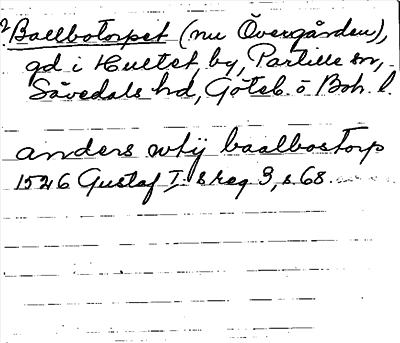 ?Baelbotorpet (nu Övergården),
gd i Hultet by, Partille sn,
Sävedals hd, Göteb. o Boh. l.
anders wtij baalbostorp
1526 Gustaf I:s reg 3, s. 68.